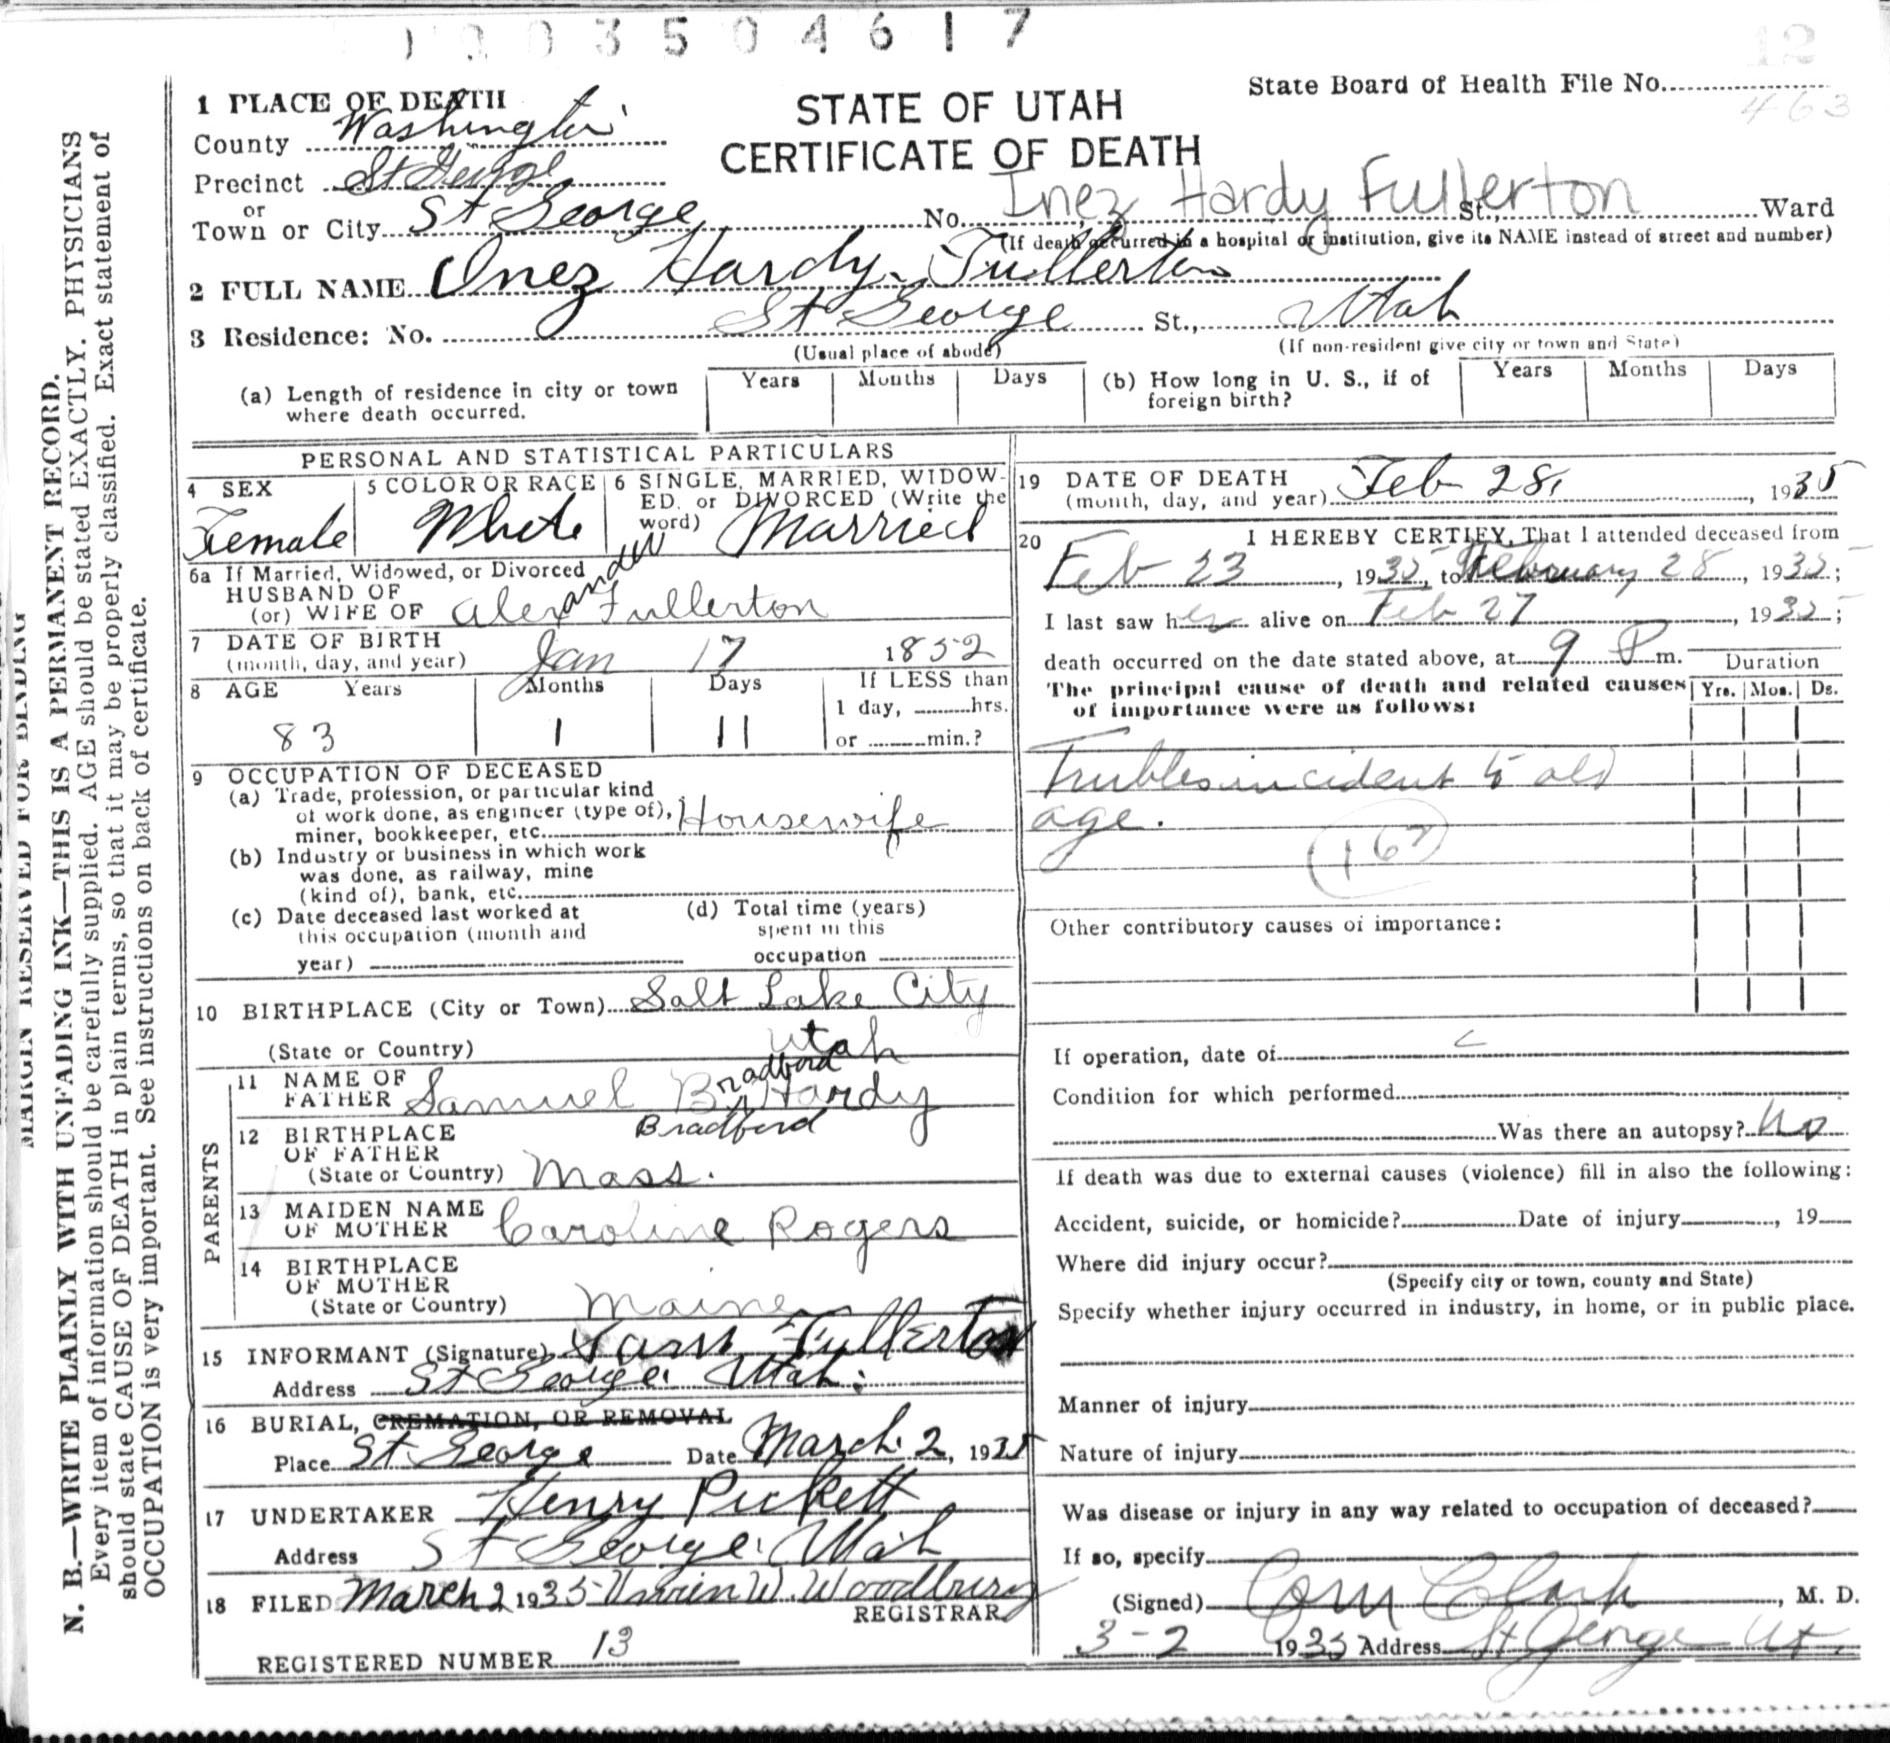 3504617
12
1 PLACE OF DEATH
STATE OF UTAH
CERTIFICATE OF DEATH
State Board of Health File No.
463
County Washington
Precinct St George
or
Town or City St George No. Inez Hardy Fullerton St., Ward
(If death occurred in a hospital or institution, give its NAME instead of street and number)
2 FULL NAME Inez Hardy Fullerton
3 Residence: No. St George St., Utah
(Usual place of abode) (If non-resident give city or town and State)
(a) Length of residence in city or town where death occurred. Years Months Days (b) How long in U. S., if of foreign birth? Years Months Days
PERSONAL AND STATISTICAL PARTICULARS
4 SEX
Female
5 COLOR OR RACE
White
6 SINGLE, MARRIED, WIDOW-
ED, or DIVORCED (Write the
word) Married
6a If Married, Widowed, or Divorced
HUSBAND OF
(or) WIFE OF Alexander Fullerton
7 DATE OF BIRTH
(month, day, and year) Jan 17 1852
8 AGE Years Months Days If LESS than
1 day, hrs.
83 1 11 or min.?
9 OCCUPATION OF DECEASED
(a) Trade, profession, or particular kind
of work done, as engineer (type of),
miner, bookkeeper, etc. Housewife
(b) Industry or business in which work
was done, as railway, mine
(kind of), bank, etc.
(c) Date deceased last worked at
this occupation (month and
year)
(d) Total time (years)
spent in this
occupation
10 BIRTHPLACE (City or Town) Salt Lake City
(State or Country) Utah
PARENTS
11 NAME OF
FATHER Samuel B Bradford Hardy
12 BIRTHPLACE Bradford
OF FATHER
(State or Country) Mass.
13 MAIDEN NAME
OF MOTHER Caroline Rogers
14 BIRTHPLACE
OF MOTHER
(State or Country) Maine
15 INFORMANT (Signature) Fullerton
Address St George. Utah.
16 BURIAL, CREMATION, OR REMOVAL
Place St George Date March 2, 1935
17 UNDERTAKER Henry Pickett
Address St George. Utah
18 FILED March 2 1935 W. Woodbury
REGISTRAR
REGISTERED NUMBER 13
19 DATE OF DEATH
(month, day, and year) Feb 28, 1935
20 I HEREBY CERTIFY, That I attended deceased from
Feb 23, 1935, to February 28, 1935;
I last saw her alive on Feb 27, 1935;
death occurred on the date stated above, at 9 P m.
Duration
The principal cause of death and related causes
of importance were as follows:
Yrs. Mos. Ds.
Trubles incident to old
age.
167
Other contributory causes of importance:
If operation, date of
Condition for which performed
Was there an autopsy? No
If death was due to external causes (violence) fill in also the following:
Accident, suicide, or homicide? Date of injury, 19
Where did injury occur?
(Specify city or town, county and State)
Specify whether injury occurred in industry, in home, or in public place.
Manner of injury
Nature of injury
Was disease or injury in any way related to occupation of deceased?
If so, specify
(Signed) Clark, M. D.
3-2 1935 Address St George Ut.
MARGIN RESERVED FOR BINDING
N. B.—WRITE PLAINLY WITH UNFADING INK—THIS IS A PERMANENT RECORD.
Every item of information should be carefully supplied. AGE should be stated EXACTLY. PHYSICIANS
should state CAUSE OF DEATH in plain terms, so that it may be properly classified. Exact statement of
OCCUPATION is very important. See instructions on back of certificate.